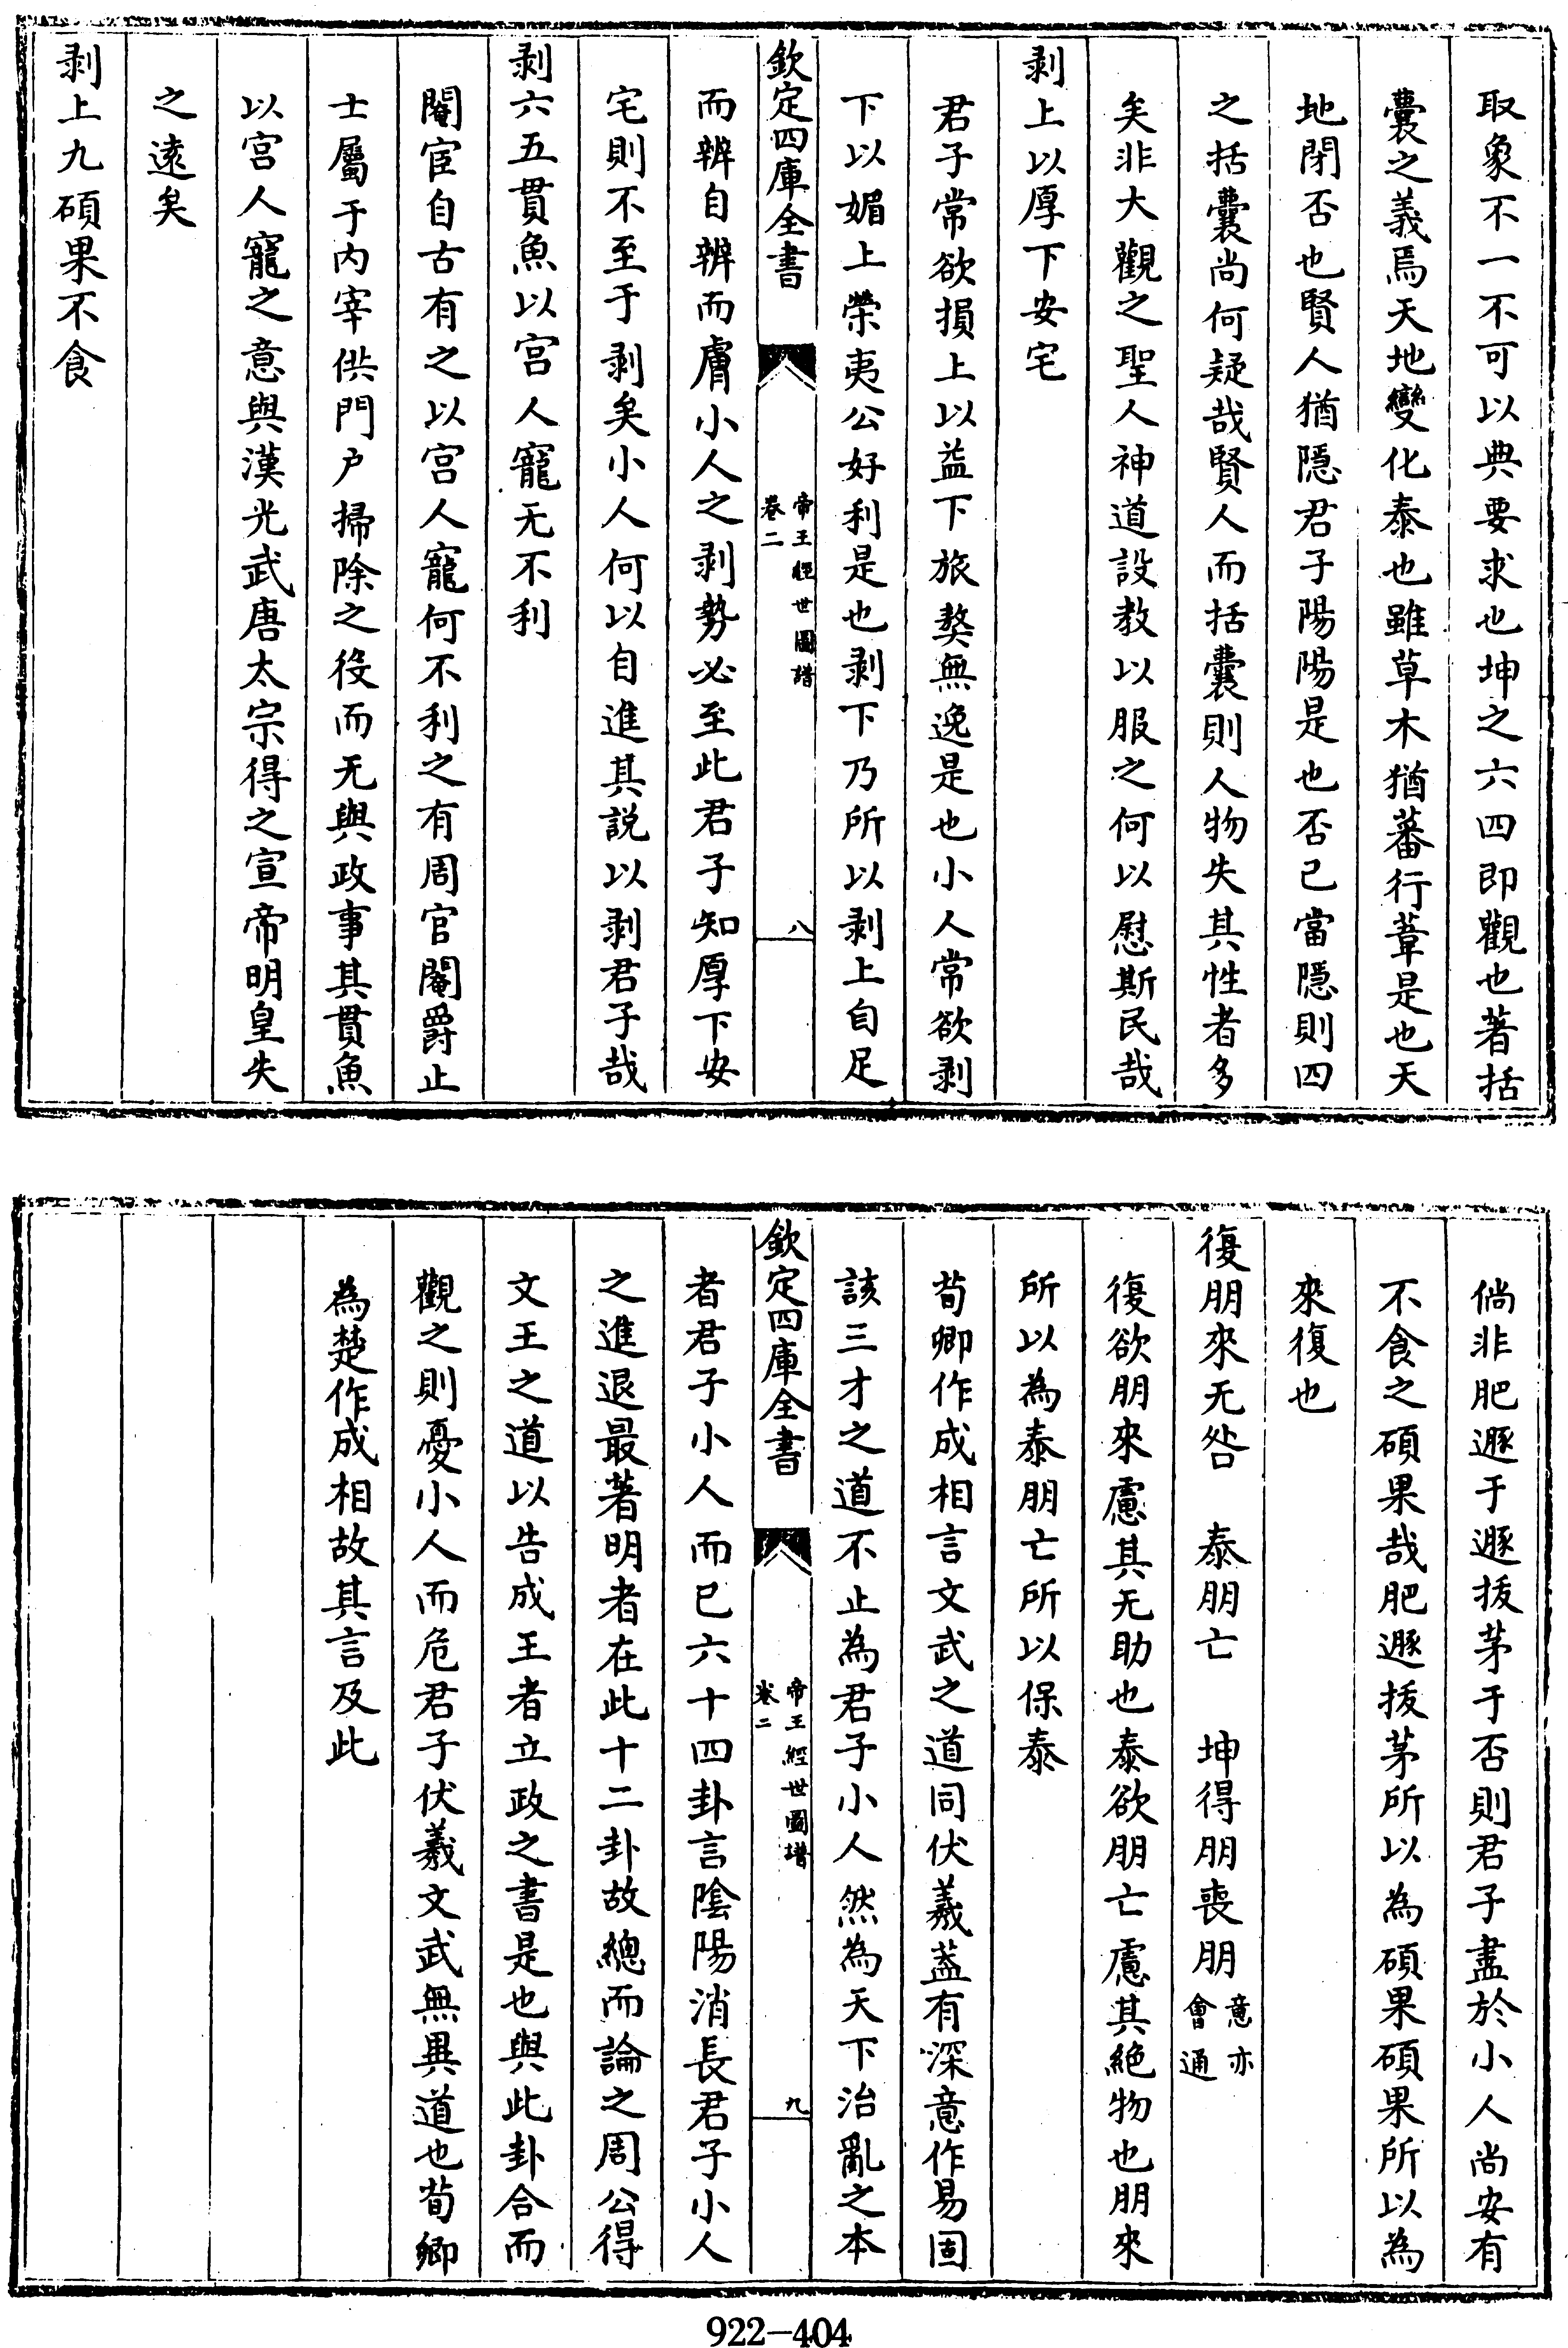 取象不一不可以典要求也坤之六四即觀也著括
囊之義焉天地變化泰也雖草木猶蕃行葦是也天
地閉否也賢人猶隱君子陽陽是也否已當隱則四
之括囊尚何疑哉賢人而括囊則人物失其性者多
矣非大觀之聖人神道設教以服之何以慰斯民哉
剥上以厚下安宅
君子常欲損上以益下旅獒無逸是也小人常欲剥
下以媚上榮夷公好利是也剥下乃所以剥上自足
欽定四庫全書
帝王經世圖譜
卷二
八
而辨自辨而膚小人之剥勢必至此君子知厚下安
宅則不至于剥矣小人何以自進其説以剥君子哉
剥六五貫魚以宫人寵无不利
閹宦自古有之以宫人寵何不利之有周官閹爵止
士屬于内宰供門户掃除之役而无與政事其貫魚
以宫人寵之意與漢光武唐太宗得之宣帝明皇失
之遠矣
剥上九碩果不食
倘非肥遯于遯拔茅于否則君子盡於小人尚安有
不食之碩果哉肥遯拔茅所以為碩果碩果所以為
來復也
復朋來无咎 泰朋亡 坤得朋喪朋
意亦
會通
復欲朋來慮其无助也泰欲朋亡慮其絶物也朋來
所以為泰朋亡所以保泰
荀卿作成相言文武之道同伏羲葢有深意作易固
該三才之道不止為君子小人然為天下治亂之本
欽定四庫全書
帝王經世圖譜
卷二
九
者君子小人而已六十四卦言陰陽消長君子小人
之進退最著明者在此十二卦故總而論之周公得
文王之道以告成王者立政之書是也與此卦合而
觀之則憂小人而危君子伏羲文武無異道也荀卿
為楚作成相故其言及此
922-404